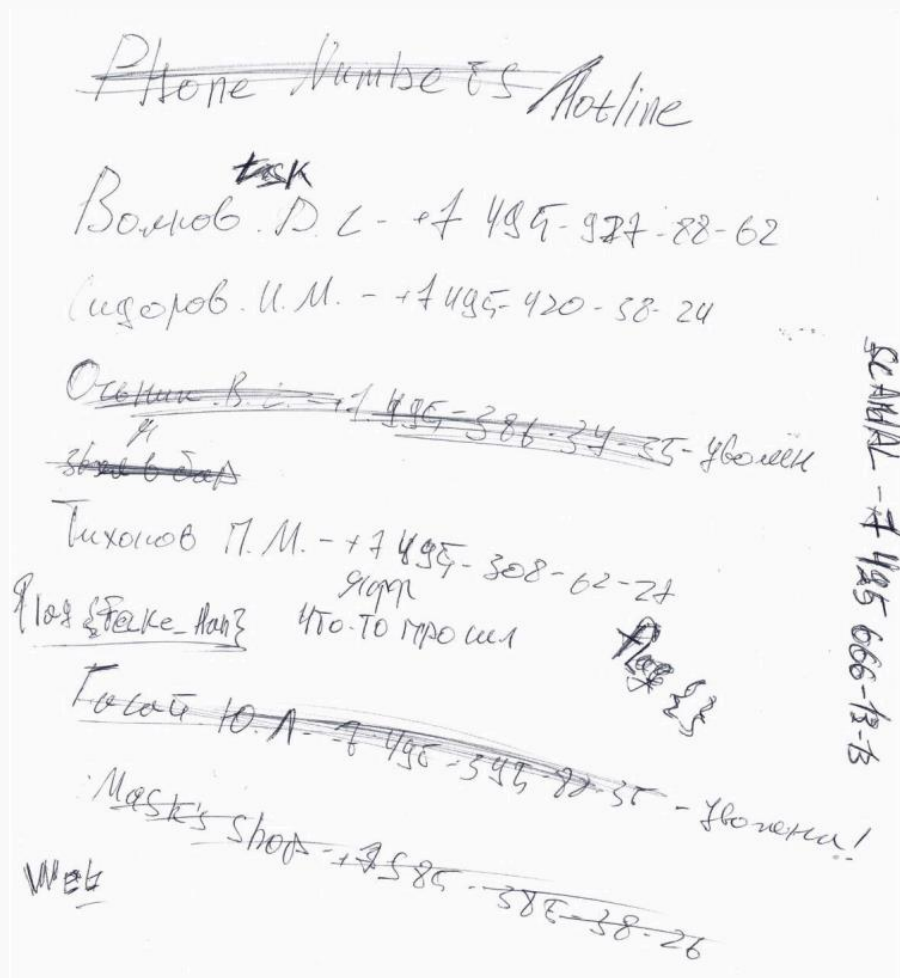 Phone Numbers Hotline
task
Волков. Д. С - +7 495-927-88-62
Сидоров. И. М. - +7 495-420-38-24
В. С. - +7 495-386-37-35 - уволен
я
звал в бар
Тихонов П. М. - +7 495-308-62-27
flag {Feke_Han}
что-то просил
flag {}
Ю. Л - 7 495-393-88-35 - уволена!
Mask's shop - +7 985 - 385-38-26
Web
SCAMAL - 7 495 666-13-13